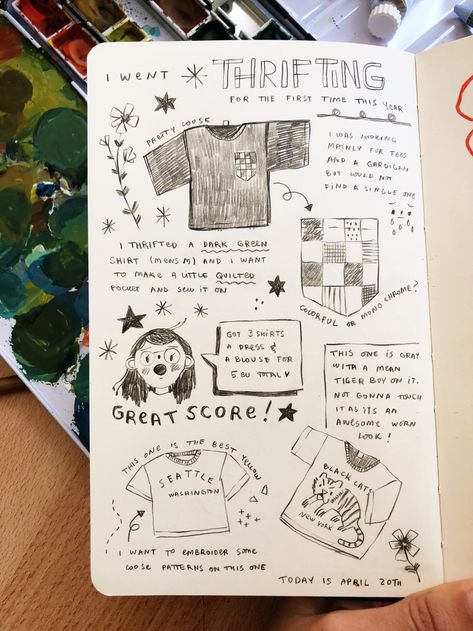 I WENT * THRIFTING
FOR THE FIRST TIME THIS YEAR
PRETTY LOOSE
I WAS LOOKING
MAINLY FOR TEES
AND A CARDIGAN
BUT COULD NOT
FIND A SINGLE ONE
I THRIFTED A DARK GREEN
SHIRT (MENS M) AND I WANT
TO MAKE A LITTLE QUILTED
POCKET AND SEW IT ON
COLORFUL OR MONOCHROME?
GOT 3 SHIRTS
A DRESS &
A BLOUSE FOR
5 EU TOTAL ♥
GREAT SCORE!
THIS ONE IS GRAY
WITH A MEAN
TIGER BOY ON IT.
NOT GONNA TOUCH
IT AS ITS AN
AWESOME WORN
LOOK!
THIS ONE IS THE BEST YELLOW
SEATTLE
WASHINGTON
BLACK CATS
NEW YORK
I WANT TO EMBROIDER SOME
LOOSE PATTERNS ON THIS ONE
TODAY IS APRIL 20TH